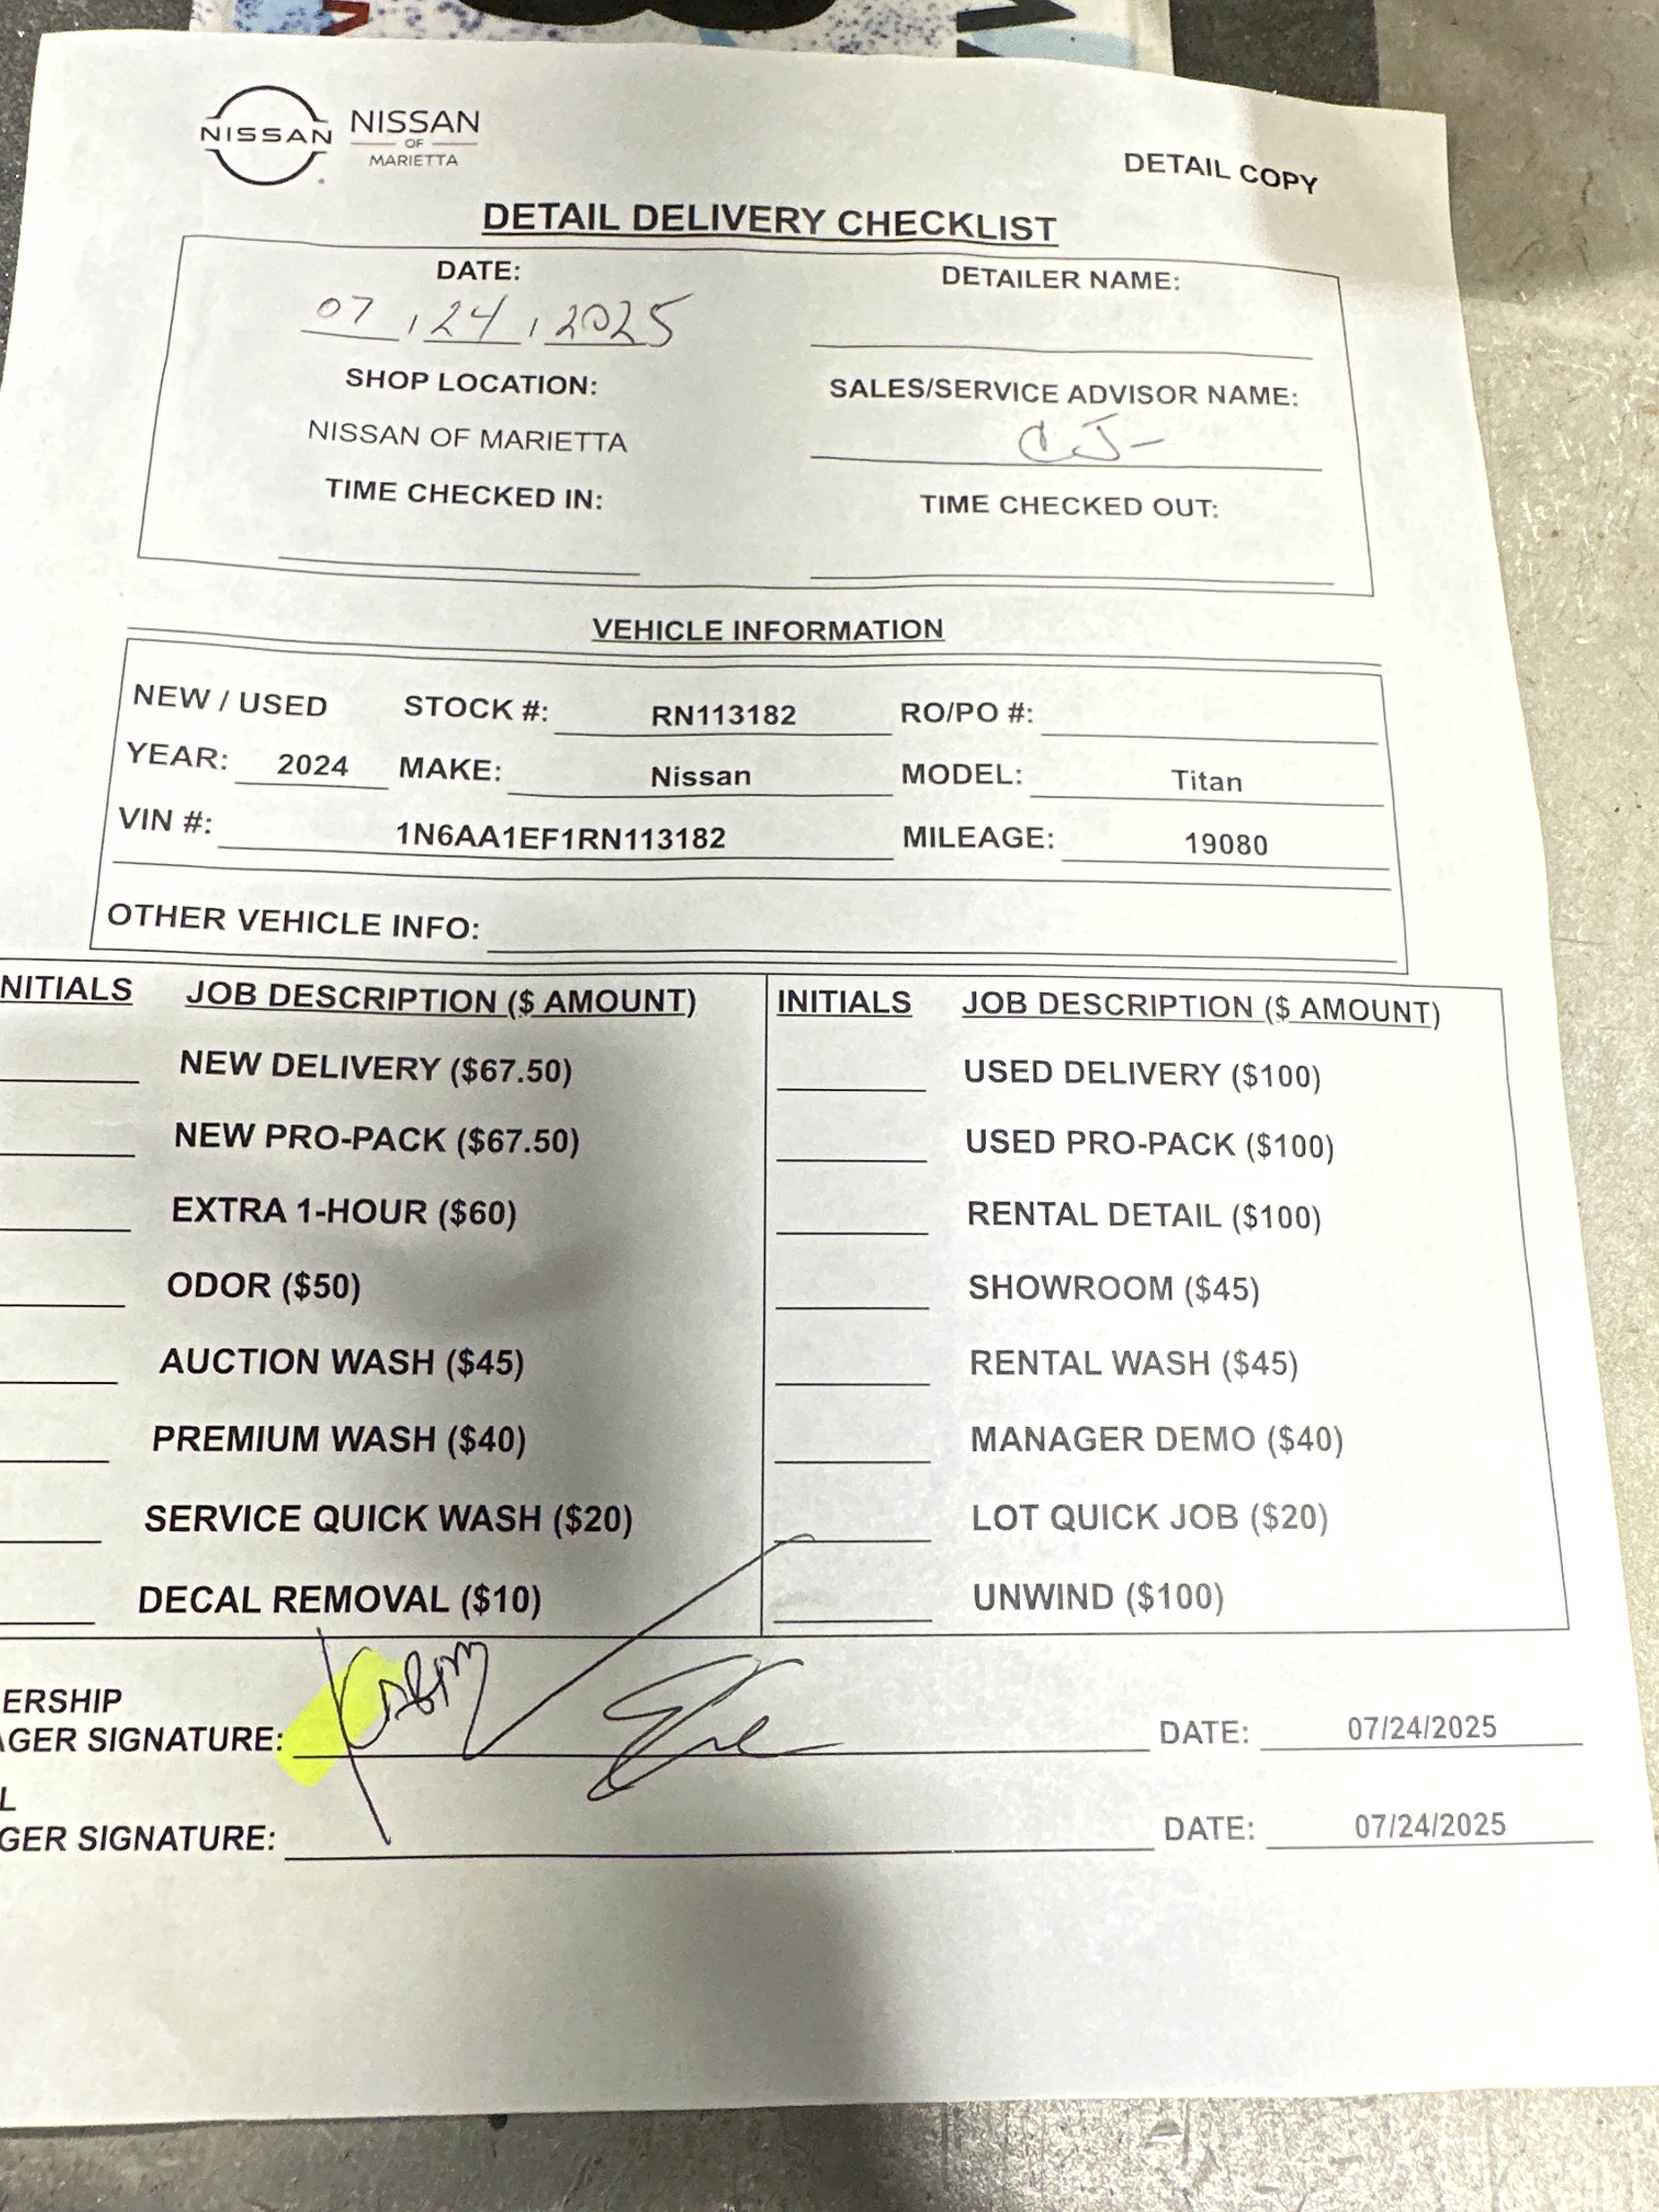 NISSAN
NISSAN
OF
MARIETTA
DETAIL COPY
DETAIL DELIVERY CHECKLIST
DATE:
07 / 24 / 2025
DETAILER NAME:
SHOP LOCATION:
NISSAN OF MARIETTA
SALES/SERVICE ADVISOR NAME:
CJ-
TIME CHECKED IN:
TIME CHECKED OUT:
VEHICLE INFORMATION
NEW / USED STOCK #: RN113182 RO/PO #:
YEAR: 2024 MAKE: Nissan MODEL: Titan
VIN #: 1N6AA1EF1RN113182 MILEAGE: 19080
OTHER VEHICLE INFO:
NITIALS JOB DESCRIPTION ($ AMOUNT) INITIALS JOB DESCRIPTION ($ AMOUNT)
NEW DELIVERY ($67.50) USED DELIVERY ($100)
NEW PRO-PACK ($67.50) USED PRO-PACK ($100)
EXTRA 1-HOUR ($60) RENTAL DETAIL ($100)
ODOR ($50) SHOWROOM ($45)
AUCTION WASH ($45) RENTAL WASH ($45)
PREMIUM WASH ($40) MANAGER DEMO ($40)
SERVICE QUICK WASH ($20) LOT QUICK JOB ($20)
DECAL REMOVAL ($10) UNWIND ($100)
ERSHIP
AGER SIGNATURE: DATE: 07/24/2025
L
GER SIGNATURE: DATE: 07/24/2025